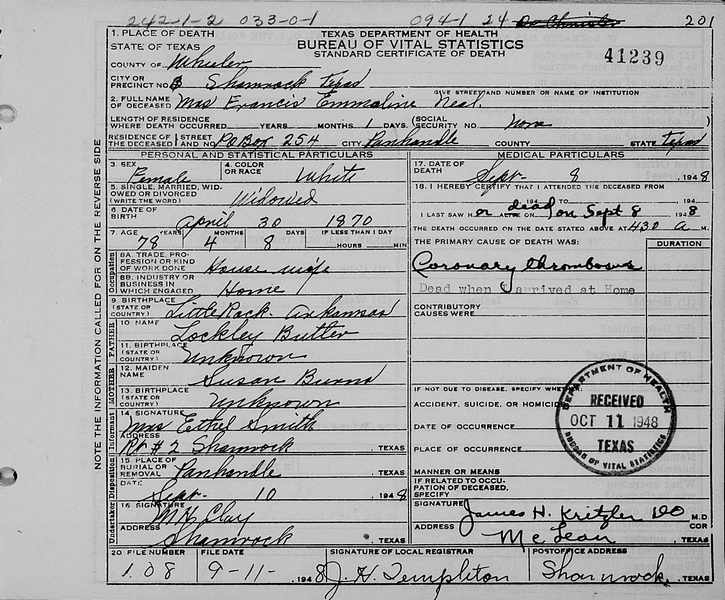 242-1-2 033-0-1 094-1 24 201
1. PLACE OF DEATH
STATE OF TEXAS
TEXAS DEPARTMENT OF HEALTH
BUREAU OF VITAL STATISTICS
STANDARD CERTIFICATE OF DEATH
41239
COUNTY OF Wheeler
CITY OR
PRECINCT NO. Shamrock Texas
GIVE STREET AND NUMBER OR NAME OF INSTITUTION
2. FULL NAME
OF DECEASED Mrs Francis Emmaline Neal.
LENGTH OF RESIDENCE
WHERE DEATH OCCURRED YEARS MONTHS 1 DAYS. (SOCIAL SECURITY NO. none
RESIDENCE OF THE DECEASED STREET AND NO. PO Box 254 CITY Panhandle COUNTY STATE Texas
PERSONAL AND STATISTICAL PARTICULARS
3. SEX Female 4. COLOR OR RACE White
5. SINGLE, MARRIED, WIDOWED OR DIVORCED (WRITE THE WORD) Widowed
6. DATE OF BIRTH April 30 1870
7. AGE 78 YEARS 4 MONTHS 8 DAYS IF LESS THAN 1 DAY HOURS MIN.
Occupation
8A. TRADE, PROFESSION OR KIND OF WORK DONE House wife
8B. INDUSTRY OR BUSINESS IN WHICH ENGAGED Home
9. BIRTHPLACE (STATE OR COUNTRY) Little Rock. Arkansas
FATHER
10. NAME Lockley Butler
11. BIRTHPLACE (STATE OR COUNTRY) Unknown
MOTHER
12. MAIDEN NAME Susan Burns
13. BIRTHPLACE (STATE OR COUNTRY) Unknown
Informant
14. SIGNATURE Mrs Ethel Smith
ADDRESS Rt #2 Shamrock, TEXAS
Disposition
15. PLACE OF BURIAL OR REMOVAL Panhandle, TEXAS
DATE Sept- 10 1948
Undertaker
16. SIGNATURE M.H. Clay
ADDRESS Shamrock, TEXAS
MEDICAL PARTICULARS
17. DATE OF DEATH Sept- 8 1948
18. I HEREBY CERTIFY THAT I ATTENDED THE DECEASED FROM
194 TO 194
I LAST SAW H or dead ALIVE ON Sept 8 1948
THE DEATH OCCURRED ON THE DATE STATED ABOVE AT 430 a M.
THE PRIMARY CAUSE OF DEATH WAS: DURATION
Coronary thrombosis
Dead when I arrived at Home
CONTRIBUTORY
CAUSES WERE
IF NOT DUE TO DISEASE, SPECIFY WHETHER
ACCIDENT, SUICIDE, OR HOMICIDE
DATE OF OCCURRENCE
PLACE OF OCCURRENCE
MANNER OR MEANS
IF RELATED TO OCCUPATION OF DECEASED, SPECIFY
DEPARTMENT OF HEALTH
RECEIVED
OCT 11 1948
TEXAS
BUREAU OF VITAL STATISTICS
SIGNATURE James H. Kritzler DO M.D.
ADDRESS McLean, TEXAS
20 FILE NUMBER 108
FILE DATE 9-11- 1948
SIGNATURE OF LOCAL REGISTRAR J. H. Templeton
POSTOFFICE ADDRESS Shamrock, TEXAS
NOTE THE INFORMATION CALLED FOR ON THE REVERSE SIDE